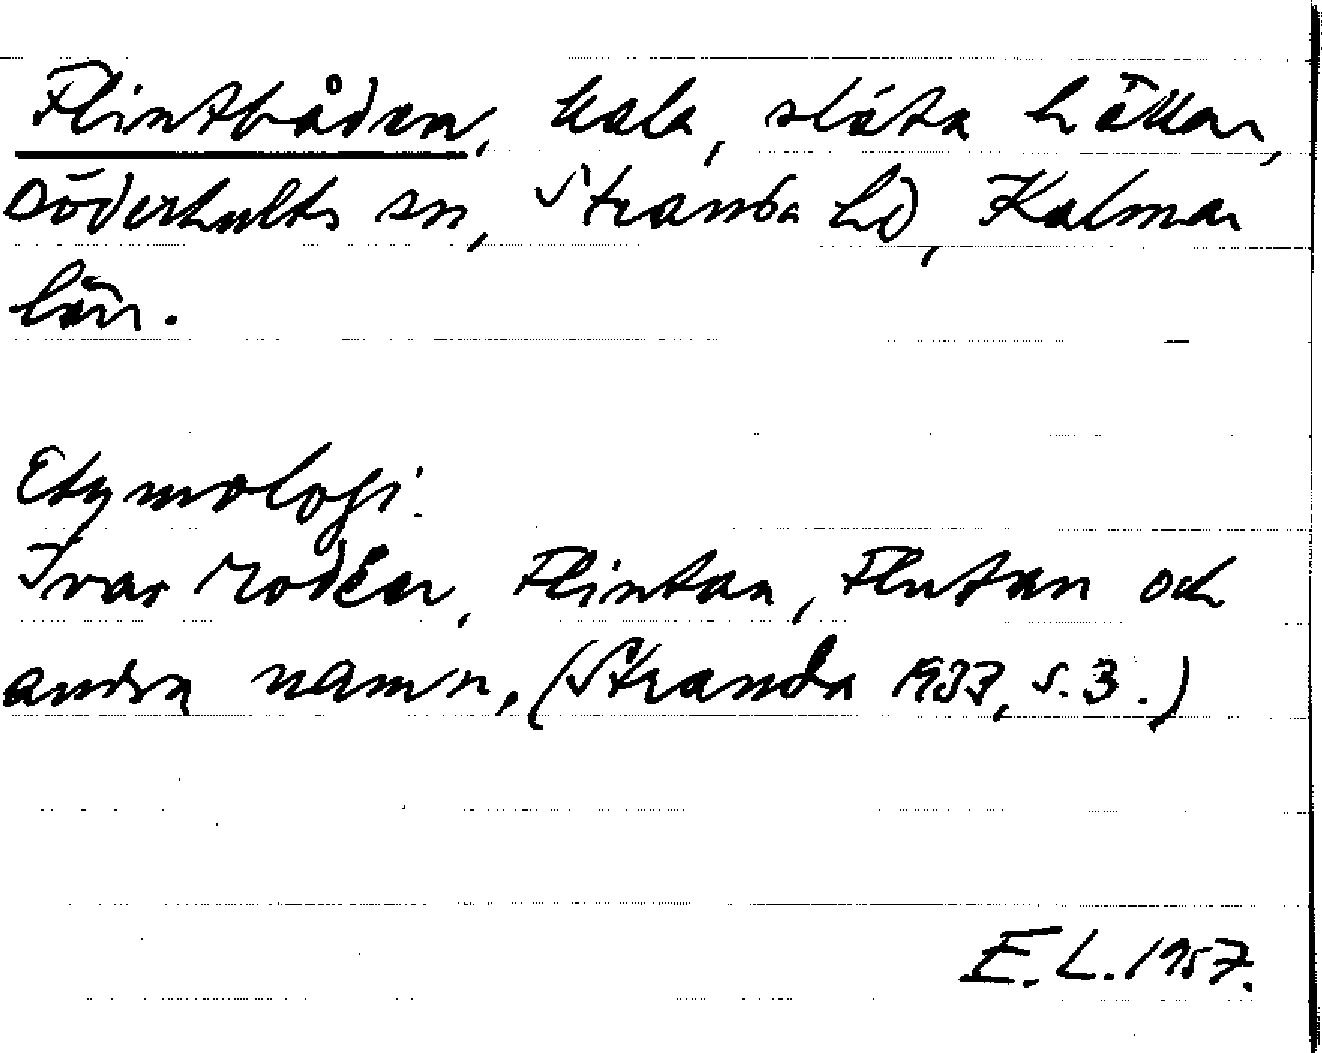 Flintbåden, kala, släta hällar,
Döderhults sn, Stranda hd, Kalmar
län.
Etymologi:
Ivar Modéer, Flintan, Flutan och
andra namn, (Stranda 1933, s. 3.)
E. L. 1957.